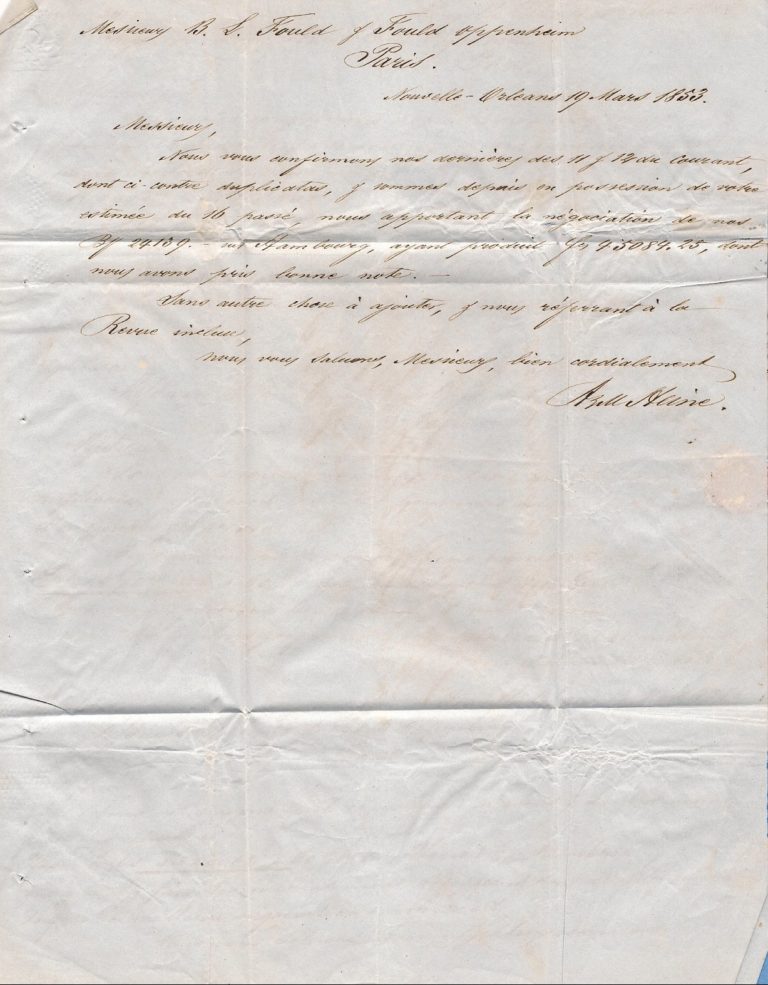 Messieurs B. L. Fould & Fould Oppenheim
Paris.
Nouvelle-Orléans 19 Mars 1853.
Messieurs,
Nous vous confirmons nos dernières des 11 & 12 du Courant,
dont ci-contre duplicatas, & sommes depuis en possession de votre
estimée du 16 passé, nous apportant la négociation de nos
24139.- sur Hambourg, ayant produit 45084.25, dont
nous avons pris bonne note.-
Sans autre chose à ajouter, & nous référant à la
Revue incluse,
nous vous saluons, Messieurs, bien cordialement
A & M Heine.